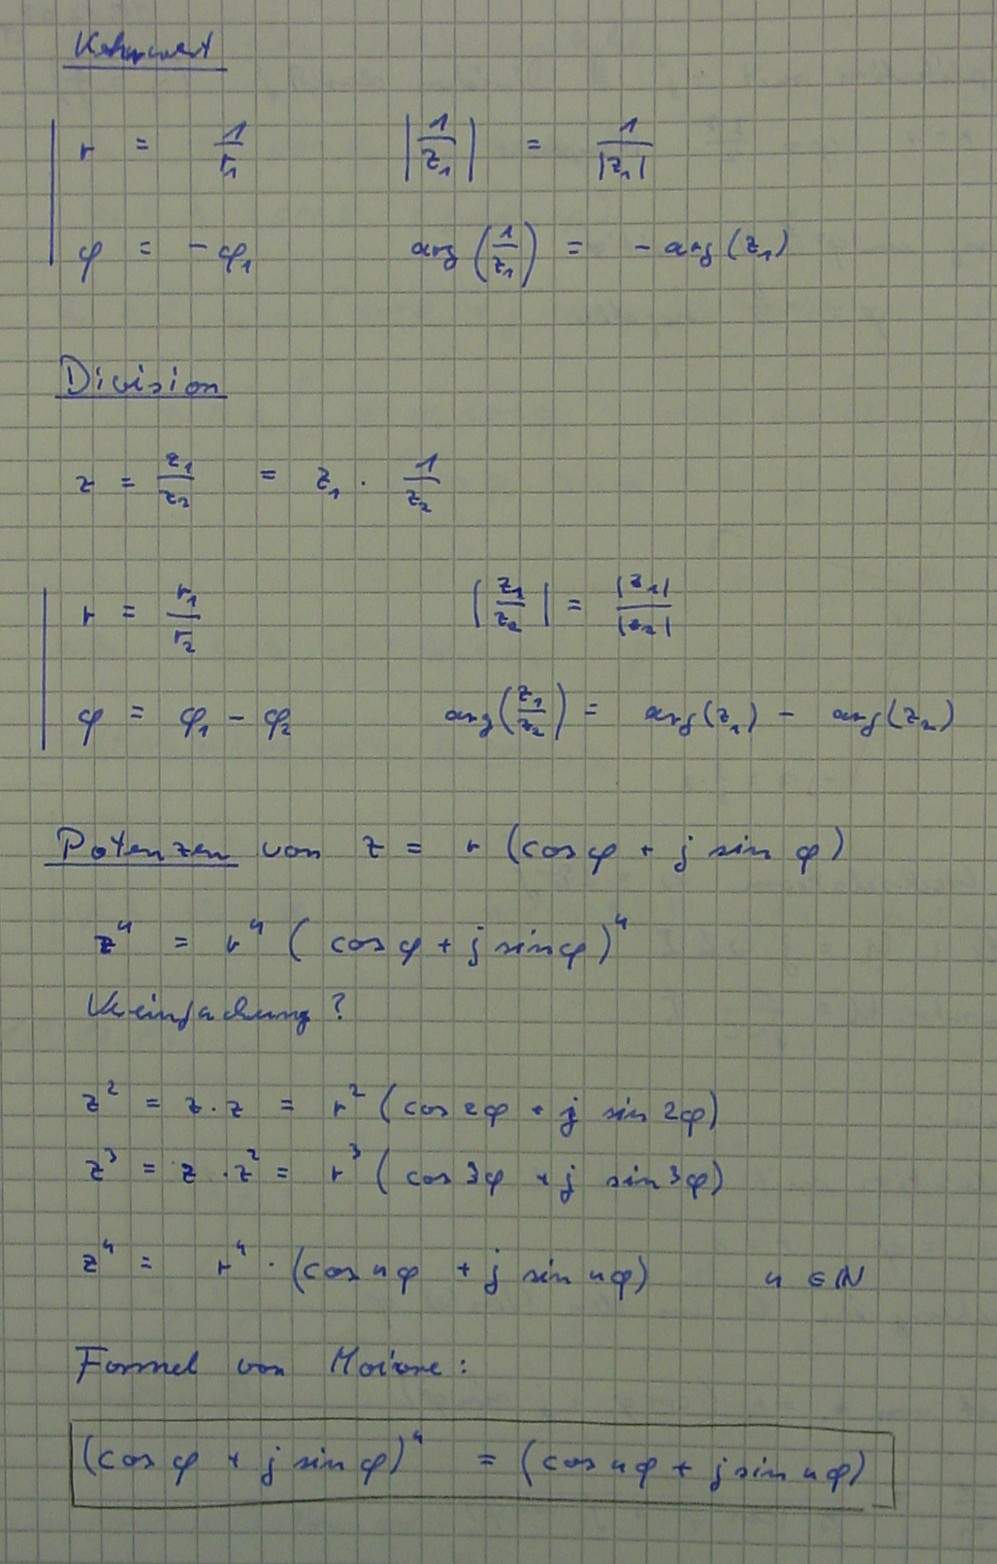 Kehrwert
r = 1/r₁   |1/z₁| = 1/|z₁|
φ = -φ₁   arg(1/z₁) = - arg(z₁)
Division
z = z₁/z₂ = z₁ · 1/z₂
r = r₁/r₂   |z₁/z₂| = |z₁|/|z₂|
φ = φ₁ - φ₂   arg(z₁/z₂) = arg(z₁) - arg(z₂)
Potenzen von z = r (cos φ + j sin φ)
zⁿ = rⁿ (cos φ + j sin φ)ⁿ
Vereinfachung?
z² = z·z = r² (cos 2φ + j sin 2φ)
z³ = z·z² = r³ (cos 3φ + j sin 3φ)
zⁿ = rⁿ · (cos nφ + j sin nφ)   n ∈ ℕ
Formel von Moivre:
(cos φ + j sin φ)ⁿ = (cos nφ + j sin nφ)